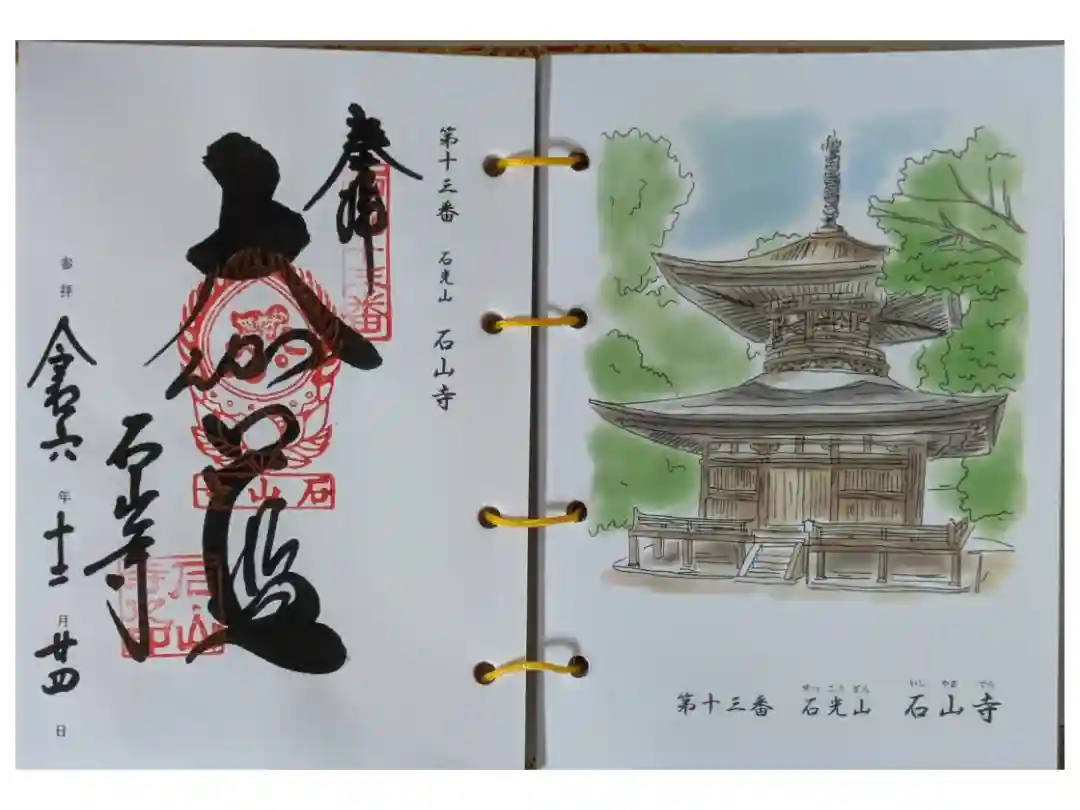 第十三番 石光山 石山寺
せっこうざん いしやまでら
第十三番 石光山 石山寺
奉拝
大伽藍
石山寺
石山寺
石山寺之印
参拝 令和六年十二月廿四日